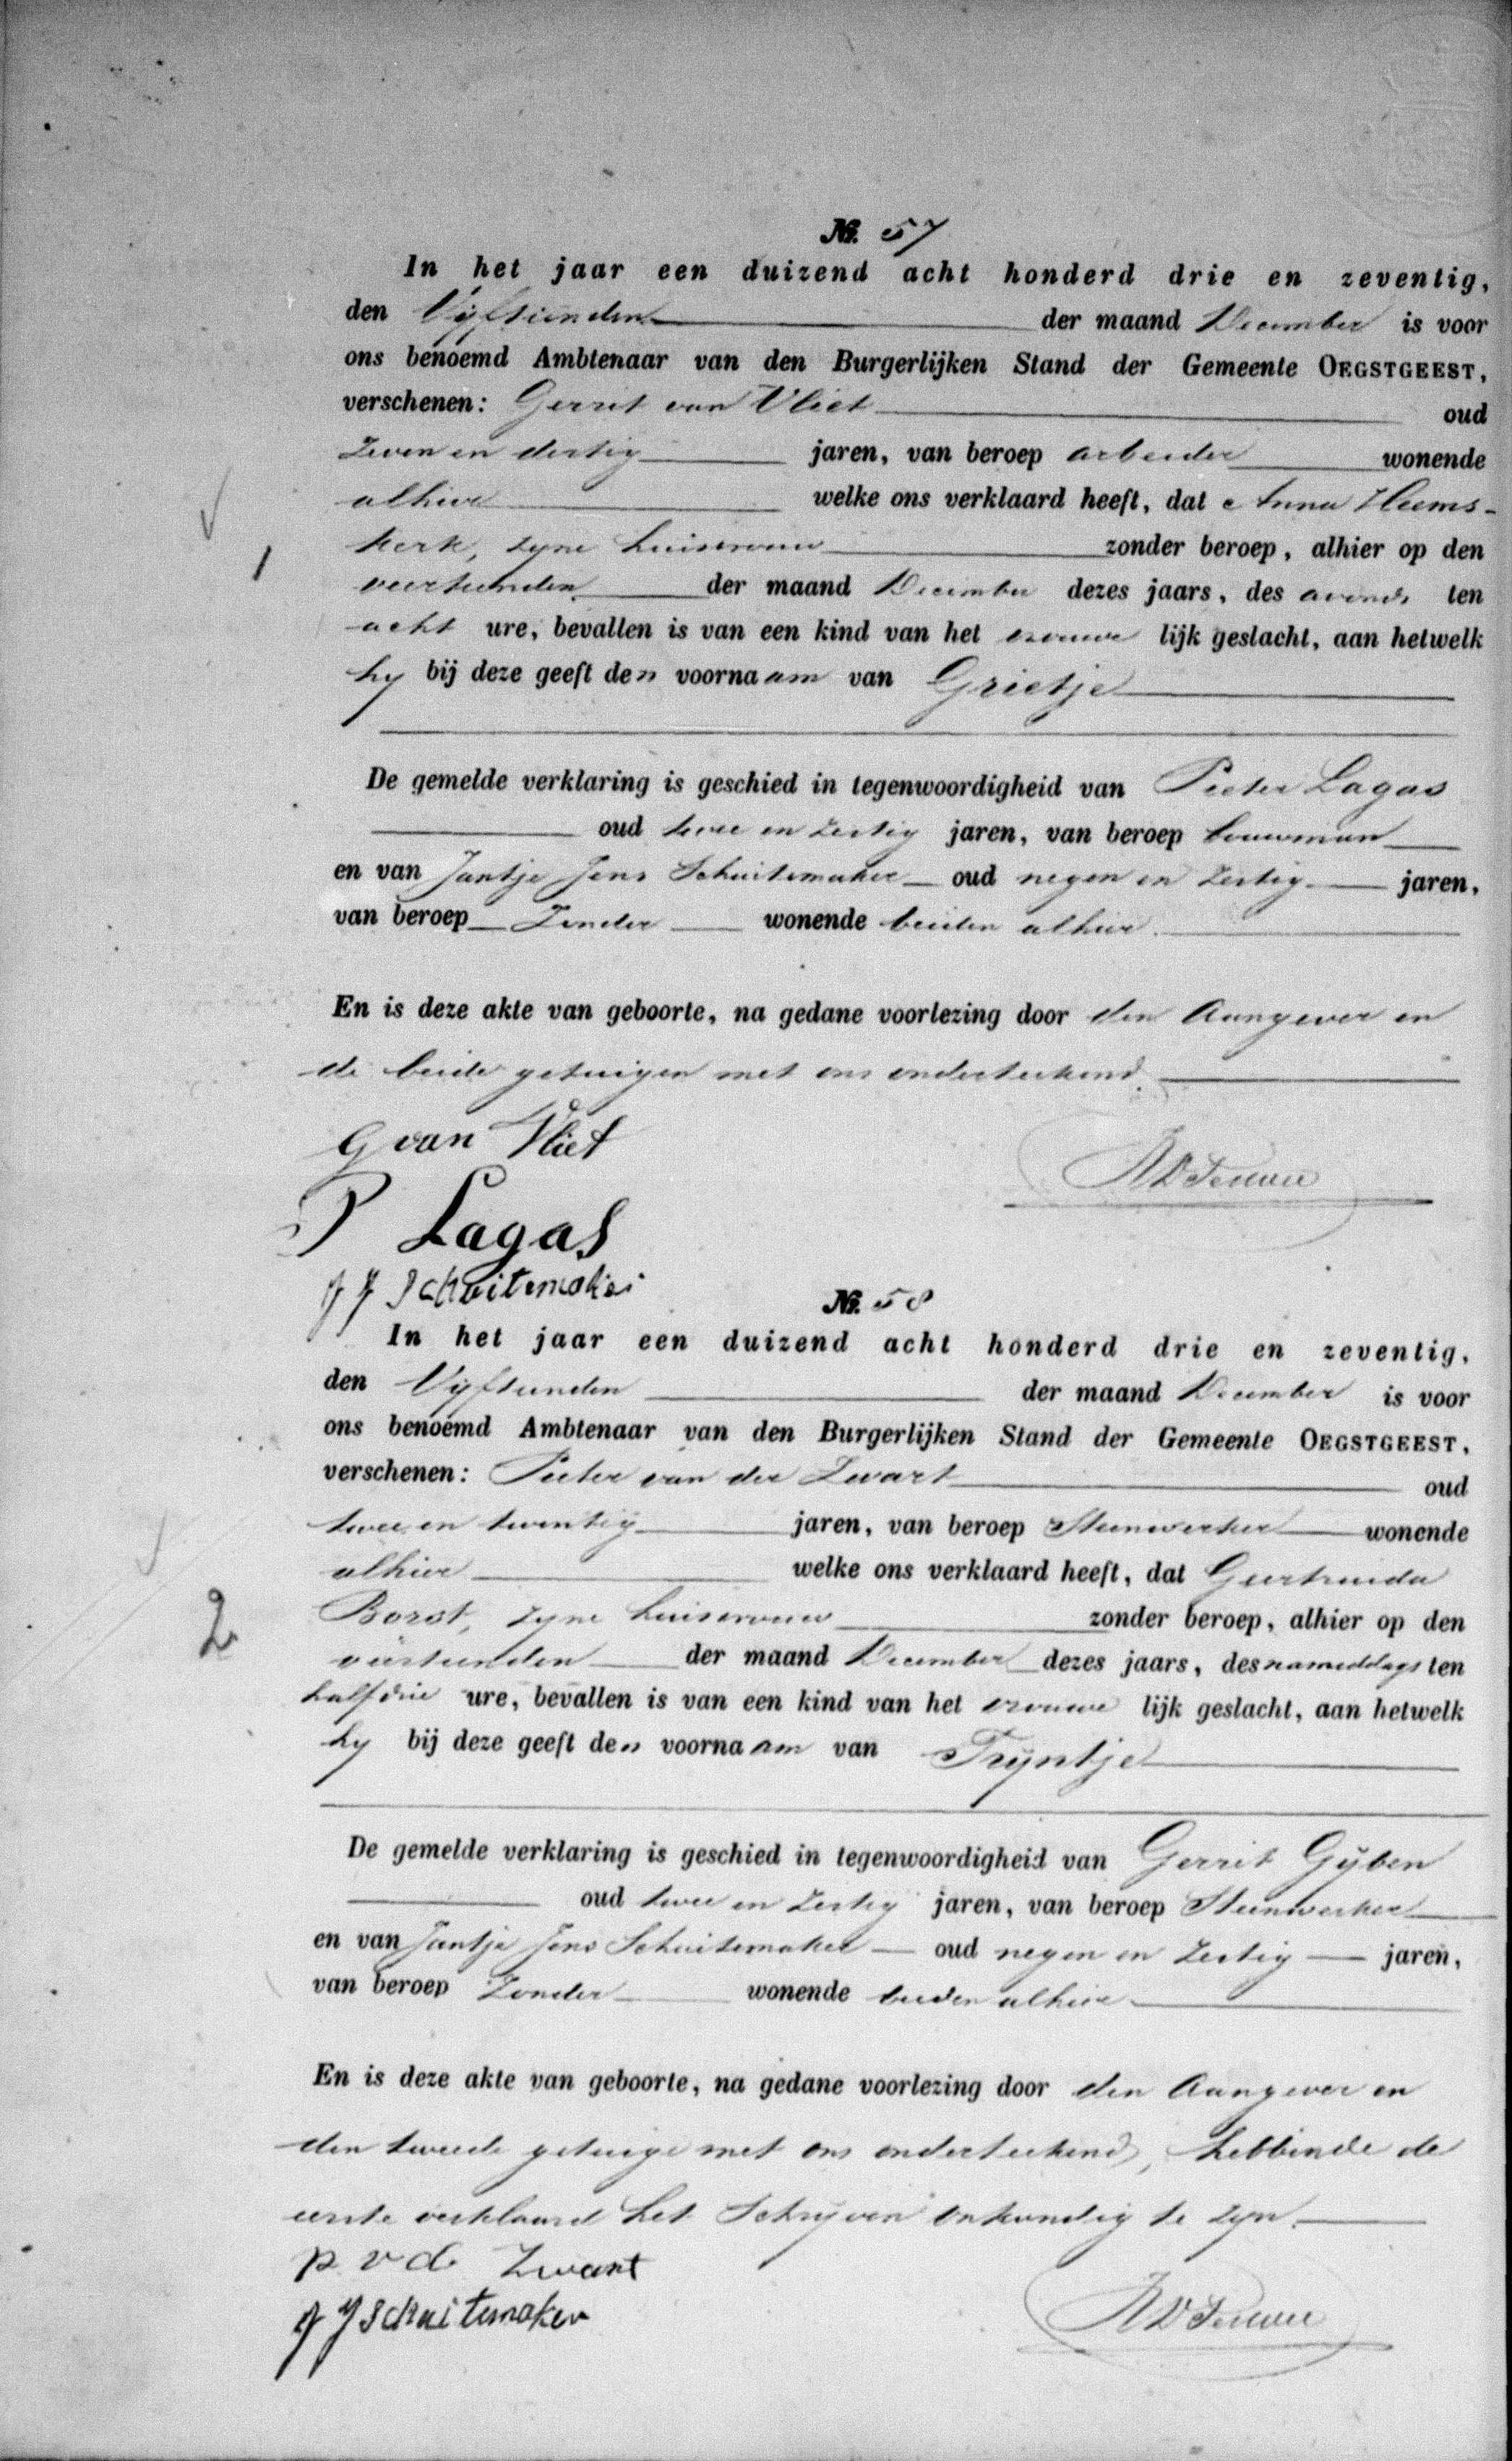 No. 57
In het jaar een duizend acht honderd drie en zeventig,
den Vijftienden der maand December is voor
ons benoemd Ambtenaar van den Burgerlijken Stand der Gemeente OEGSTGEEST,
verschenen: Gerrit van Vliet oud
Zeven en dertig jaren, van beroep arbeider wonende
alhier welke ons verklaard heeft, dat Anna Heems-
1 kerk, zyne huisvrouw zonder beroep, alhier op den
veertienden der maand December dezes jaars, des avonds ten
acht ure, bevallen is van een kind van het vrouwe lijk geslacht, aan hetwelk
hy bij deze geeft den voornaam van Grietje
De gemelde verklaring is geschied in tegenwoordigheid van Pieter Lagas
oud twee en zestig jaren, van beroep bouwman
en van Jantje Jens Schuitemaker oud negen en zestig jaren,
van beroep Zonder wonende beiden alhier.
En is deze akte van geboorte, na gedane voorlezing door den Aangever en
de beide getuigen met ons onderteekend.
G van Vliet
P Lagas
J J Schuitemaker
No. 58
In het jaar een duizend acht honderd drie en zeventig,
den Vijftienden der maand December is voor
ons benoemd Ambtenaar van den Burgerlijken Stand der Gemeente OEGSTGEEST,
verschenen: Pieter van der Zwart oud
twee en twintig jaren, van beroep Steenwerker wonende
alhier welke ons verklaard heeft, dat Geertruida
2 Borst, zyne huisvrouw zonder beroep, alhier op den
veertienden der maand December dezes jaars, des namiddags ten
half drie ure, bevallen is van een kind van het vrouwe lijk geslacht, aan hetwelk
hy bij deze geeft den voornaam van Trijntje
De gemelde verklaring is geschied in tegenwoordigheid van Gerrit Gijben
oud twee en zestig jaren, van beroep Steenwerker
en van Jantje Jens Schuitemaker oud negen en zestig jaren,
van beroep Zonder wonende beiden alhier
En is deze akte van geboorte, na gedane voorlezing door den Aangever en
den tweede getuige met ons onderteekend, hebbende de
eerste verklaard het Schrijven onkundig te zyn.
p v d Zwart
J J Schuitemaker